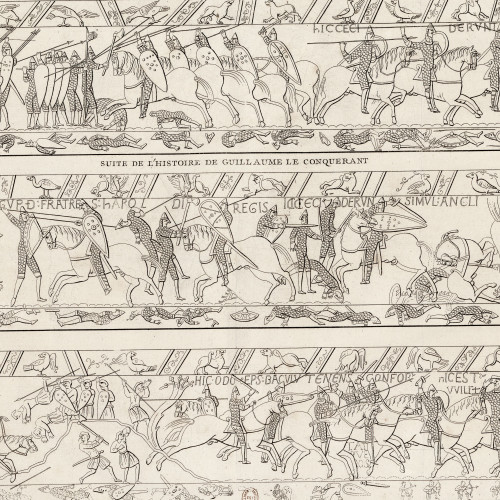 hICCECI DERVNT
SUITE DE L'HISTOIRE DE GUILLAUME LE CONQUERANT
FRATRES hAROLDI REGIS hICCECIDERVNT SIMVL ANGLI
hIC ODO EPS BACVLV TENENS CONFOR hIC EST
VVILEL